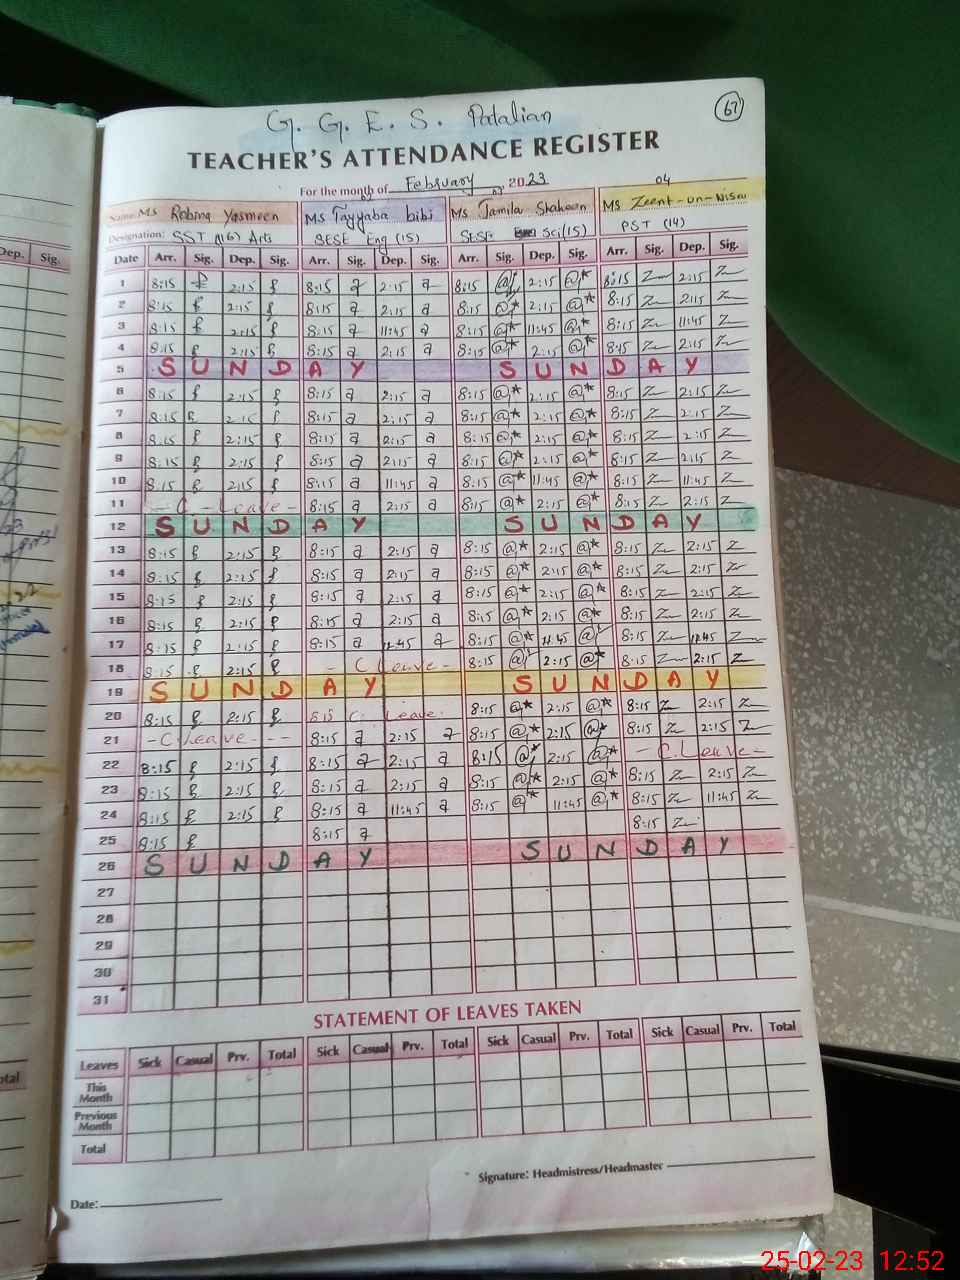 67
G. G. E. S. Patalian
TEACHER'S ATTENDANCE REGISTER
For the month of February, 2023
04
Name: Ms Robina Yasmeen Ms Tayyaba bibi Ms Jamila Shaheen Ms Zeent-un-Nisa
Designation: SST (16) Arts SESE Eng (15) SESE Sci (15) PST (14)
Date Arr. Sig. Dep. Sig. Arr. Sig. Dep. Sig. Arr. Sig. Dep. Sig. Arr. Sig. Dep. Sig.
1 8:15 2:15 8:15 2:15 8:15 2:15 8:15 2:15
2 8:15 2:15 8:15 2:15 8:15 2:15 8:15 2:15
3 8:15 2:15 8:15 11:45 8:15 11:45 8:15 11:45
4 8:15 2:15 8:15 2:15 8:15 2:15 8:15 2:15
5 SUNDAY SUNDAY
6 8:15 2:15 8:15 2:15 8:15 2:15 8:15 2:15
7 8:15 2:15 8:15 2:15 8:15 2:15 8:15 2:15
8 8:15 2:15 8:15 2:15 8:15 2:15 8:15 2:15
9 8:15 2:15 8:15 2:15 8:15 2:15 8:15 2:15
10 8:15 2:15 8:15 11:45 8:15 11:45 8:15 11:45
11 - C - Leave - 8:15 2:15 8:15 2:15 8:15 2:15
12 SUNDAY SUNDAY
13 8:15 2:15 8:15 2:15 8:15 2:15 8:15 2:15
14 8:15 2:15 8:15 2:15 8:15 2:15 8:15 2:15
15 8:15 2:15 8:15 2:15 8:15 2:15 8:15 2:15
16 8:15 2:15 8:15 2:15 8:15 2:15 8:15 2:15
17 8:15 2:15 8:15 8:15 8:15
18 8:15 2:15 - C Leave - 8:15 2:15 8:15 2:15
19 SUNDAY SUNDAY
20 8:15 2:15 8:15 C. Leave 8:15 2:15 8:15 2:15
21 - C Leave - - - 8:15 2:15 8:15 2:15 8:15 2:15
22 8:15 2:15 8:15 2:15 8:15 2:15 - C. Leave -
23 8:15 2:15 8:15 2:15 8:15 2:15 8:15 2:15
24 8:15 2:15 8:15 11:45 8:15 11:45 8:15 11:45
25 8:15 8:15 8:15
26 SUNDAY SUNDAY
27
28
29
30
31
STATEMENT OF LEAVES TAKEN
Leaves Sick Casual Prv. Total Sick Casual Prv. Total Sick Casual Prv. Total Sick Casual Prv. Total
This Month
Previous Month
Total
Signature: Headmistress/Headmaster
Date:
Dep. Sig.
25-02-23 12:52